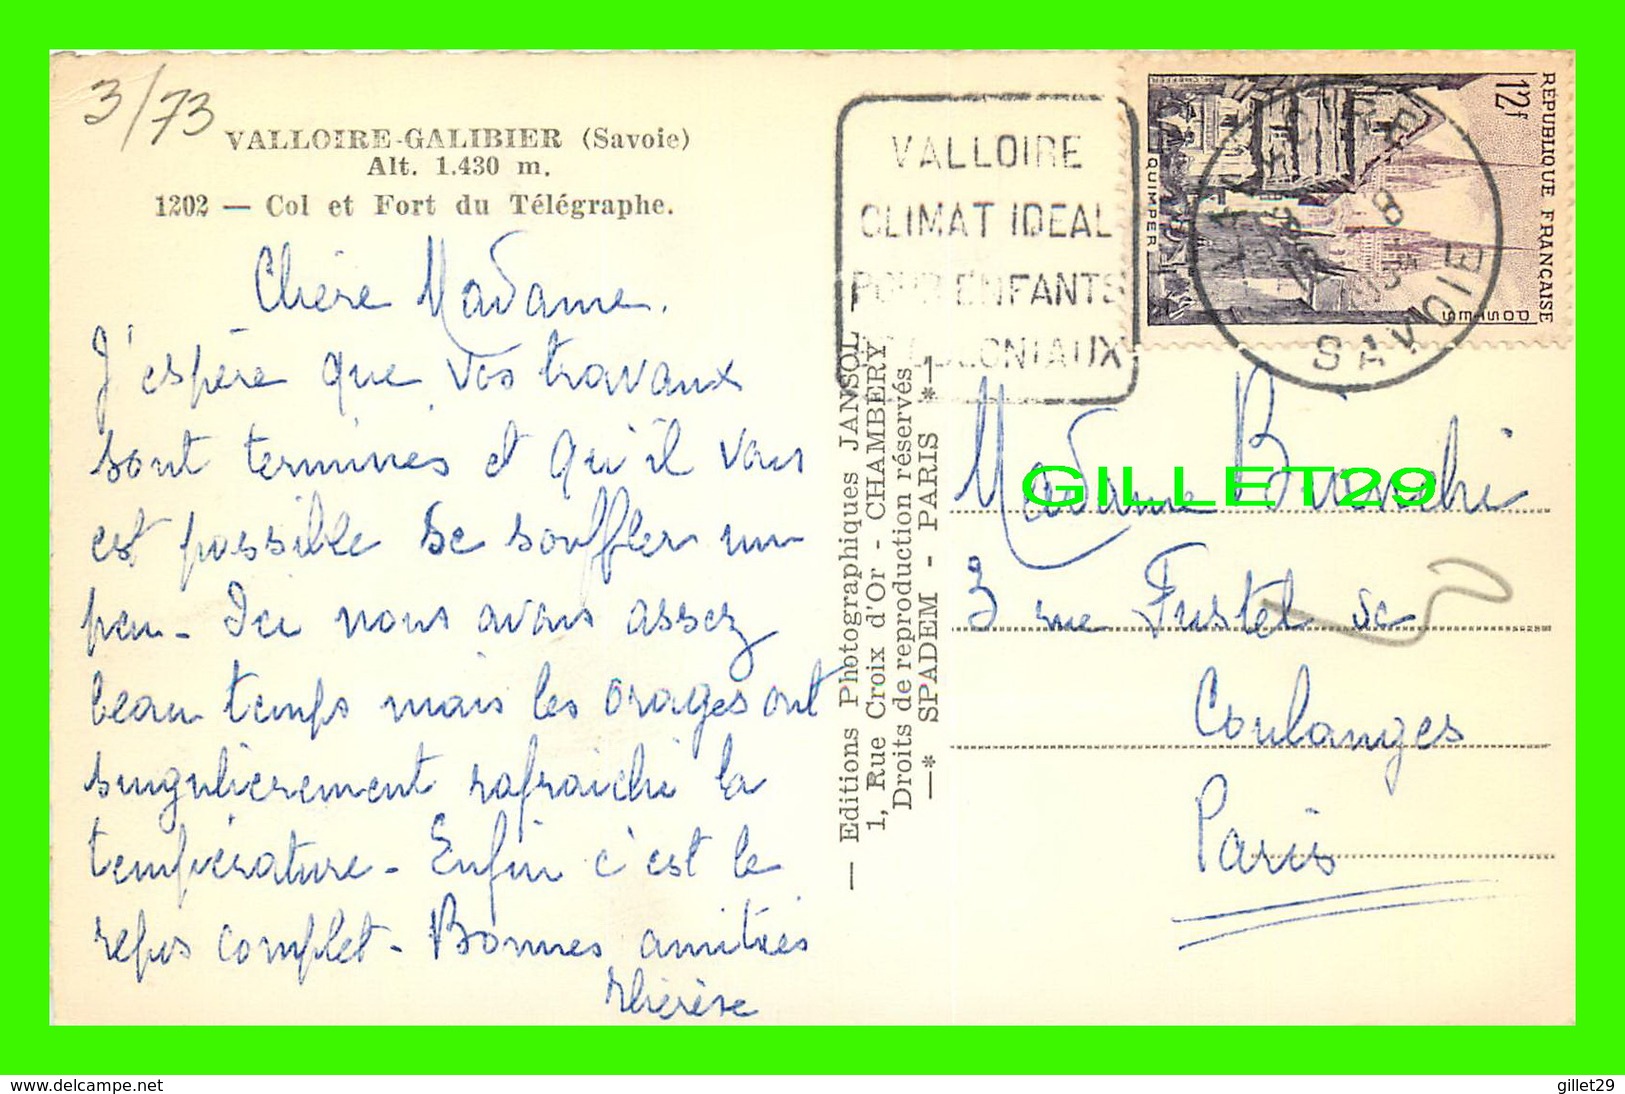 3/73
VALLOIRE-GALIBIER (Savoie)
Alt. 1.430 m.
1202 — Col et Fort du Télégraphe.
Chère Madame.
J'espère que vos travaux
sont terminés et qu'il vous
est possible de souffler un
peu - Ici nous avons assez
beau temps mais les orages ont
singulièrement rafraichi la
température - Enfin c'est le
repos complet - Bonnes amitiés
Thérèse
— Editions Photographiques JANSOL —
1, Rue Croix d'Or - CHAMBERY
Droits de reproduction réservés
—* SPADEM - PARIS *—
VALLOIRE
CLIMAT IDEAL
POUR ENFANTS
COLONIAUX
RÉPUBLIQUE FRANÇAISE
12f
POSTES
QUIMPER
VALLOIRE
8
SAVOIE
Madame Bianchi
3 rue Fustel de
Coulanges
Paris
GILLET29
www.delcampe.net
gillet29